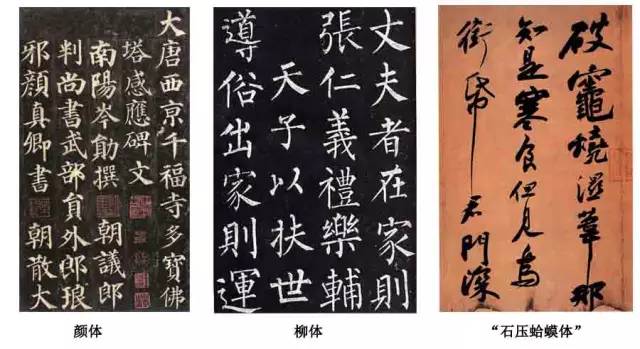 大唐西京千福寺多寶佛
塔感應碑文
南陽岑勛撰 朝議郎
判尚書武部員外郎琅
邪顏真卿書 朝散大
丈夫者在家則
張仁義禮樂輔
天子以扶世
導俗出家則運
破竈燒濕葦那
知是寒食但見烏
銜帋君門深
颜体
柳体
“石压蛤蟆体”